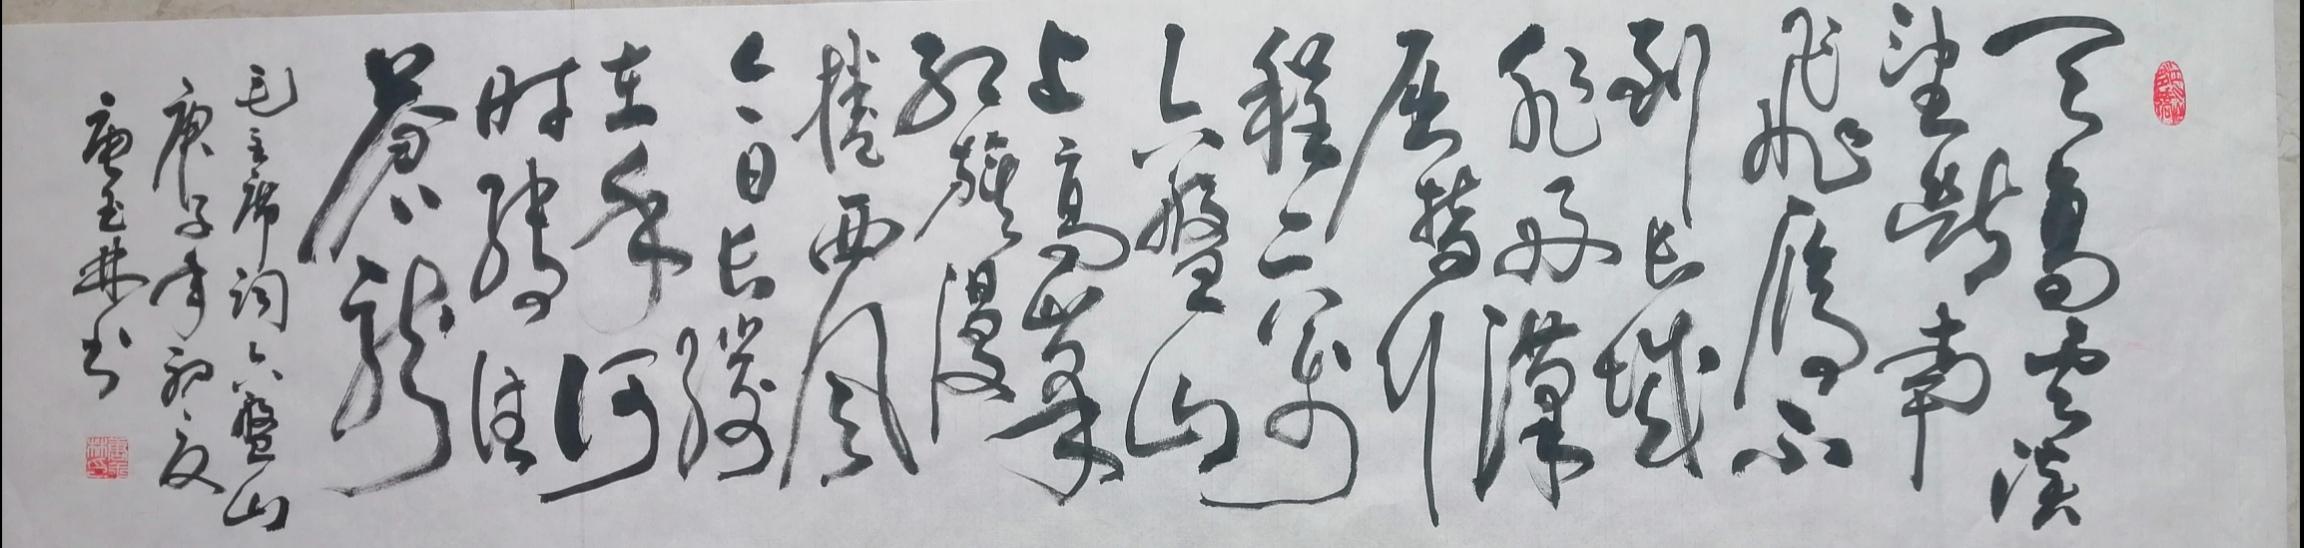 天高云淡
望断南
飛雁不
到长城
非好漢
屈指行
程二萬
六盤山
上高峯
红旗漫
捲西风
今日长缨
在手何
时缚住
蒼龙
毛主席词六盤山
庚子年初夏
唐玉林书
唐玉林印